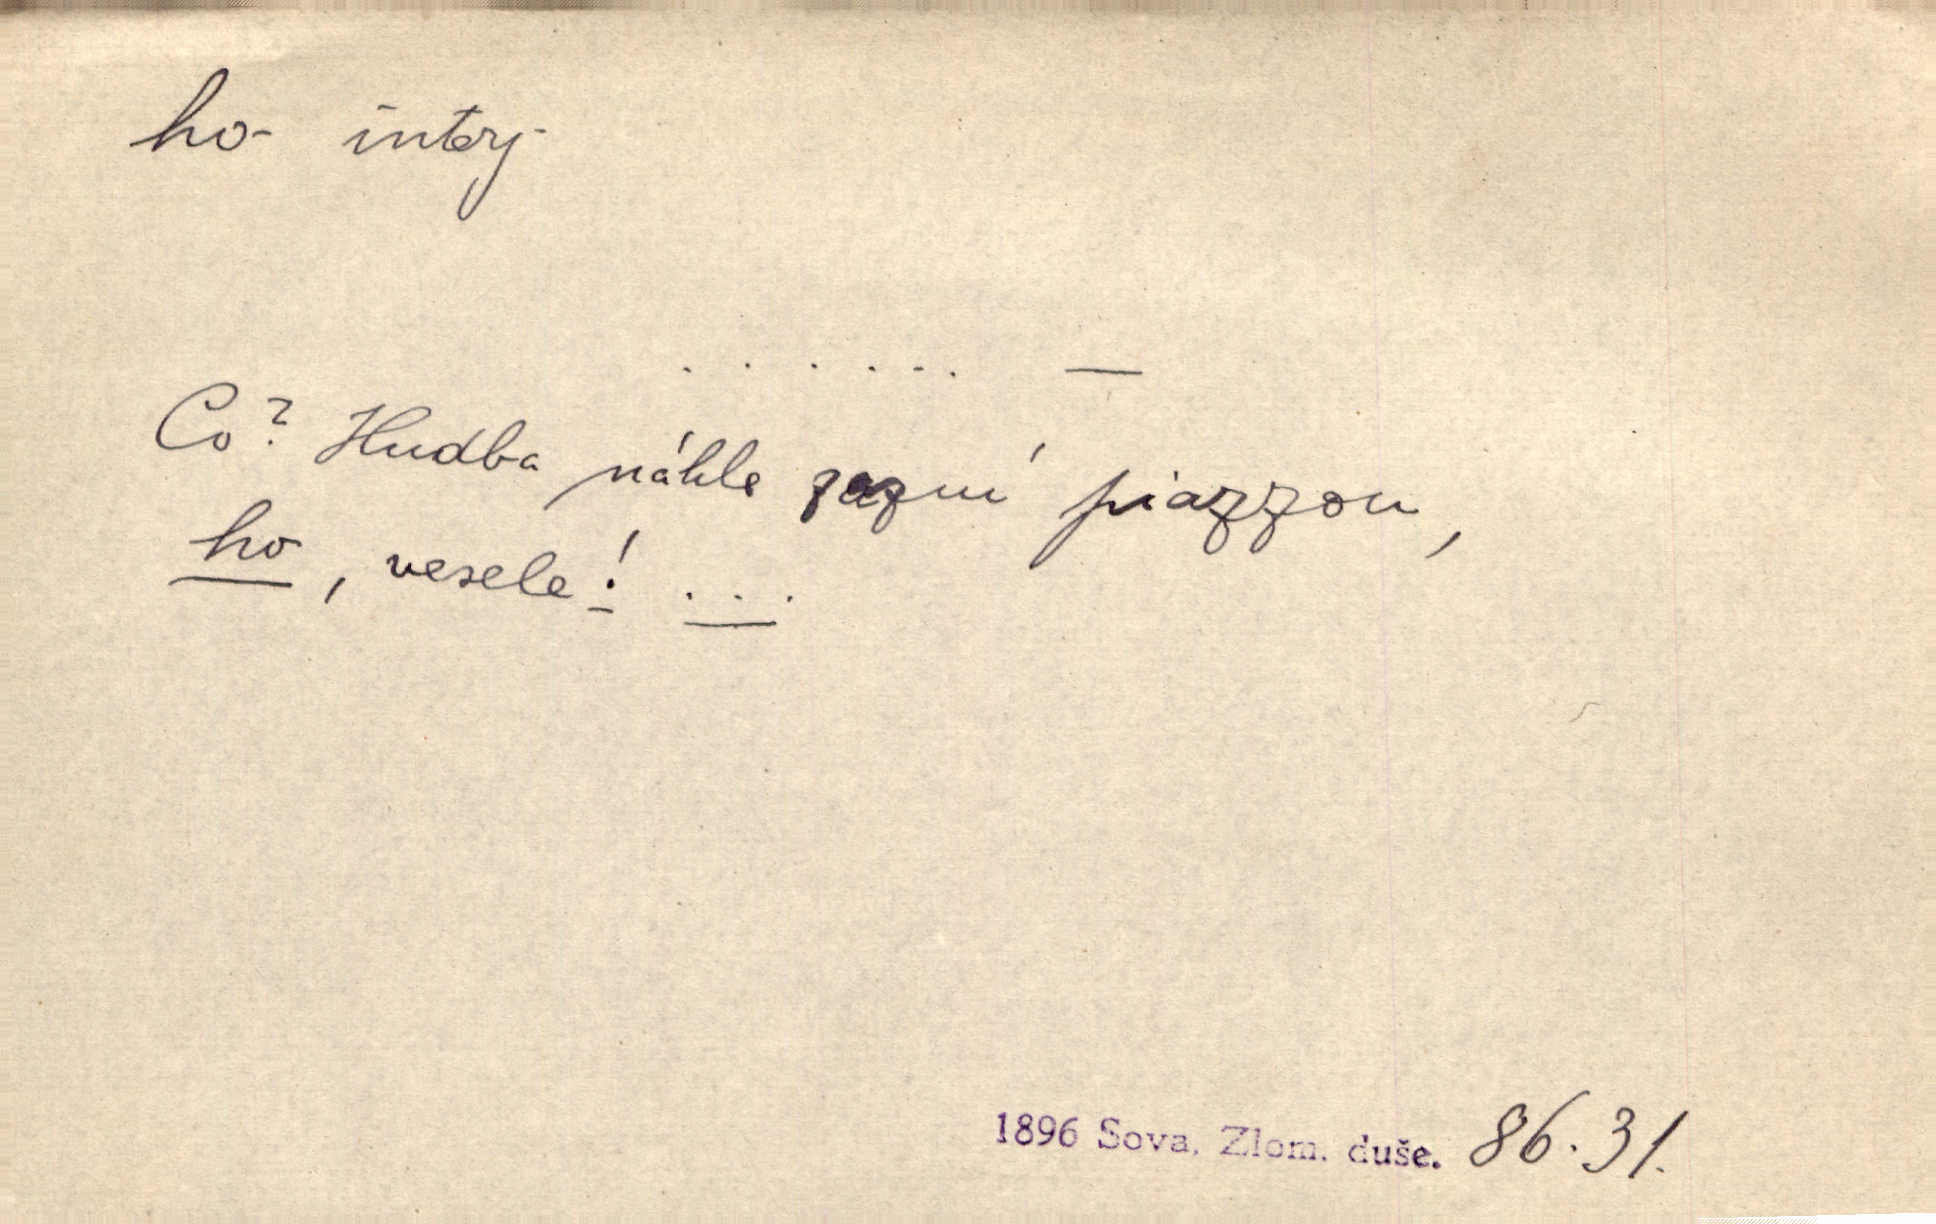 ho- interj-
. . . . . . —
Co? Hudba náhle zazní piazzou,
ho, vesele! ...
1896 Sova, Zlom. duše. 86.31.